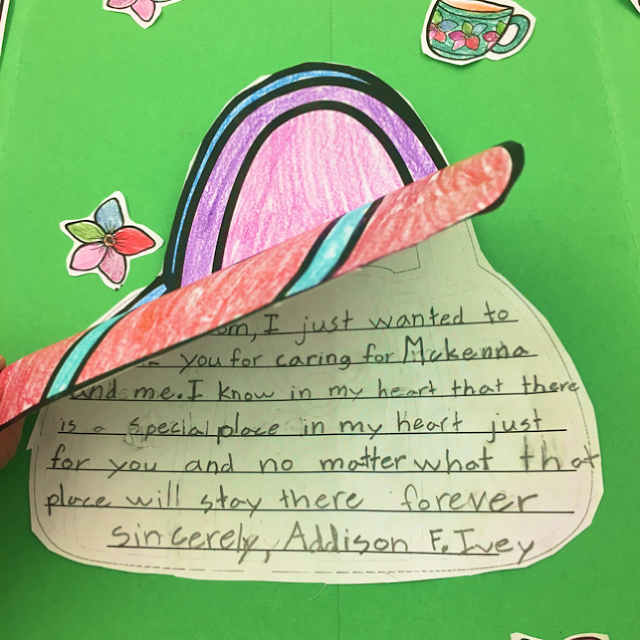 I just wanted to
you for caring for Mckenna
and me. I know in my heart that there
is a special place in my heart just
for you and no matter what that
place will stay there forever
sincerely, Addison F. Ivey